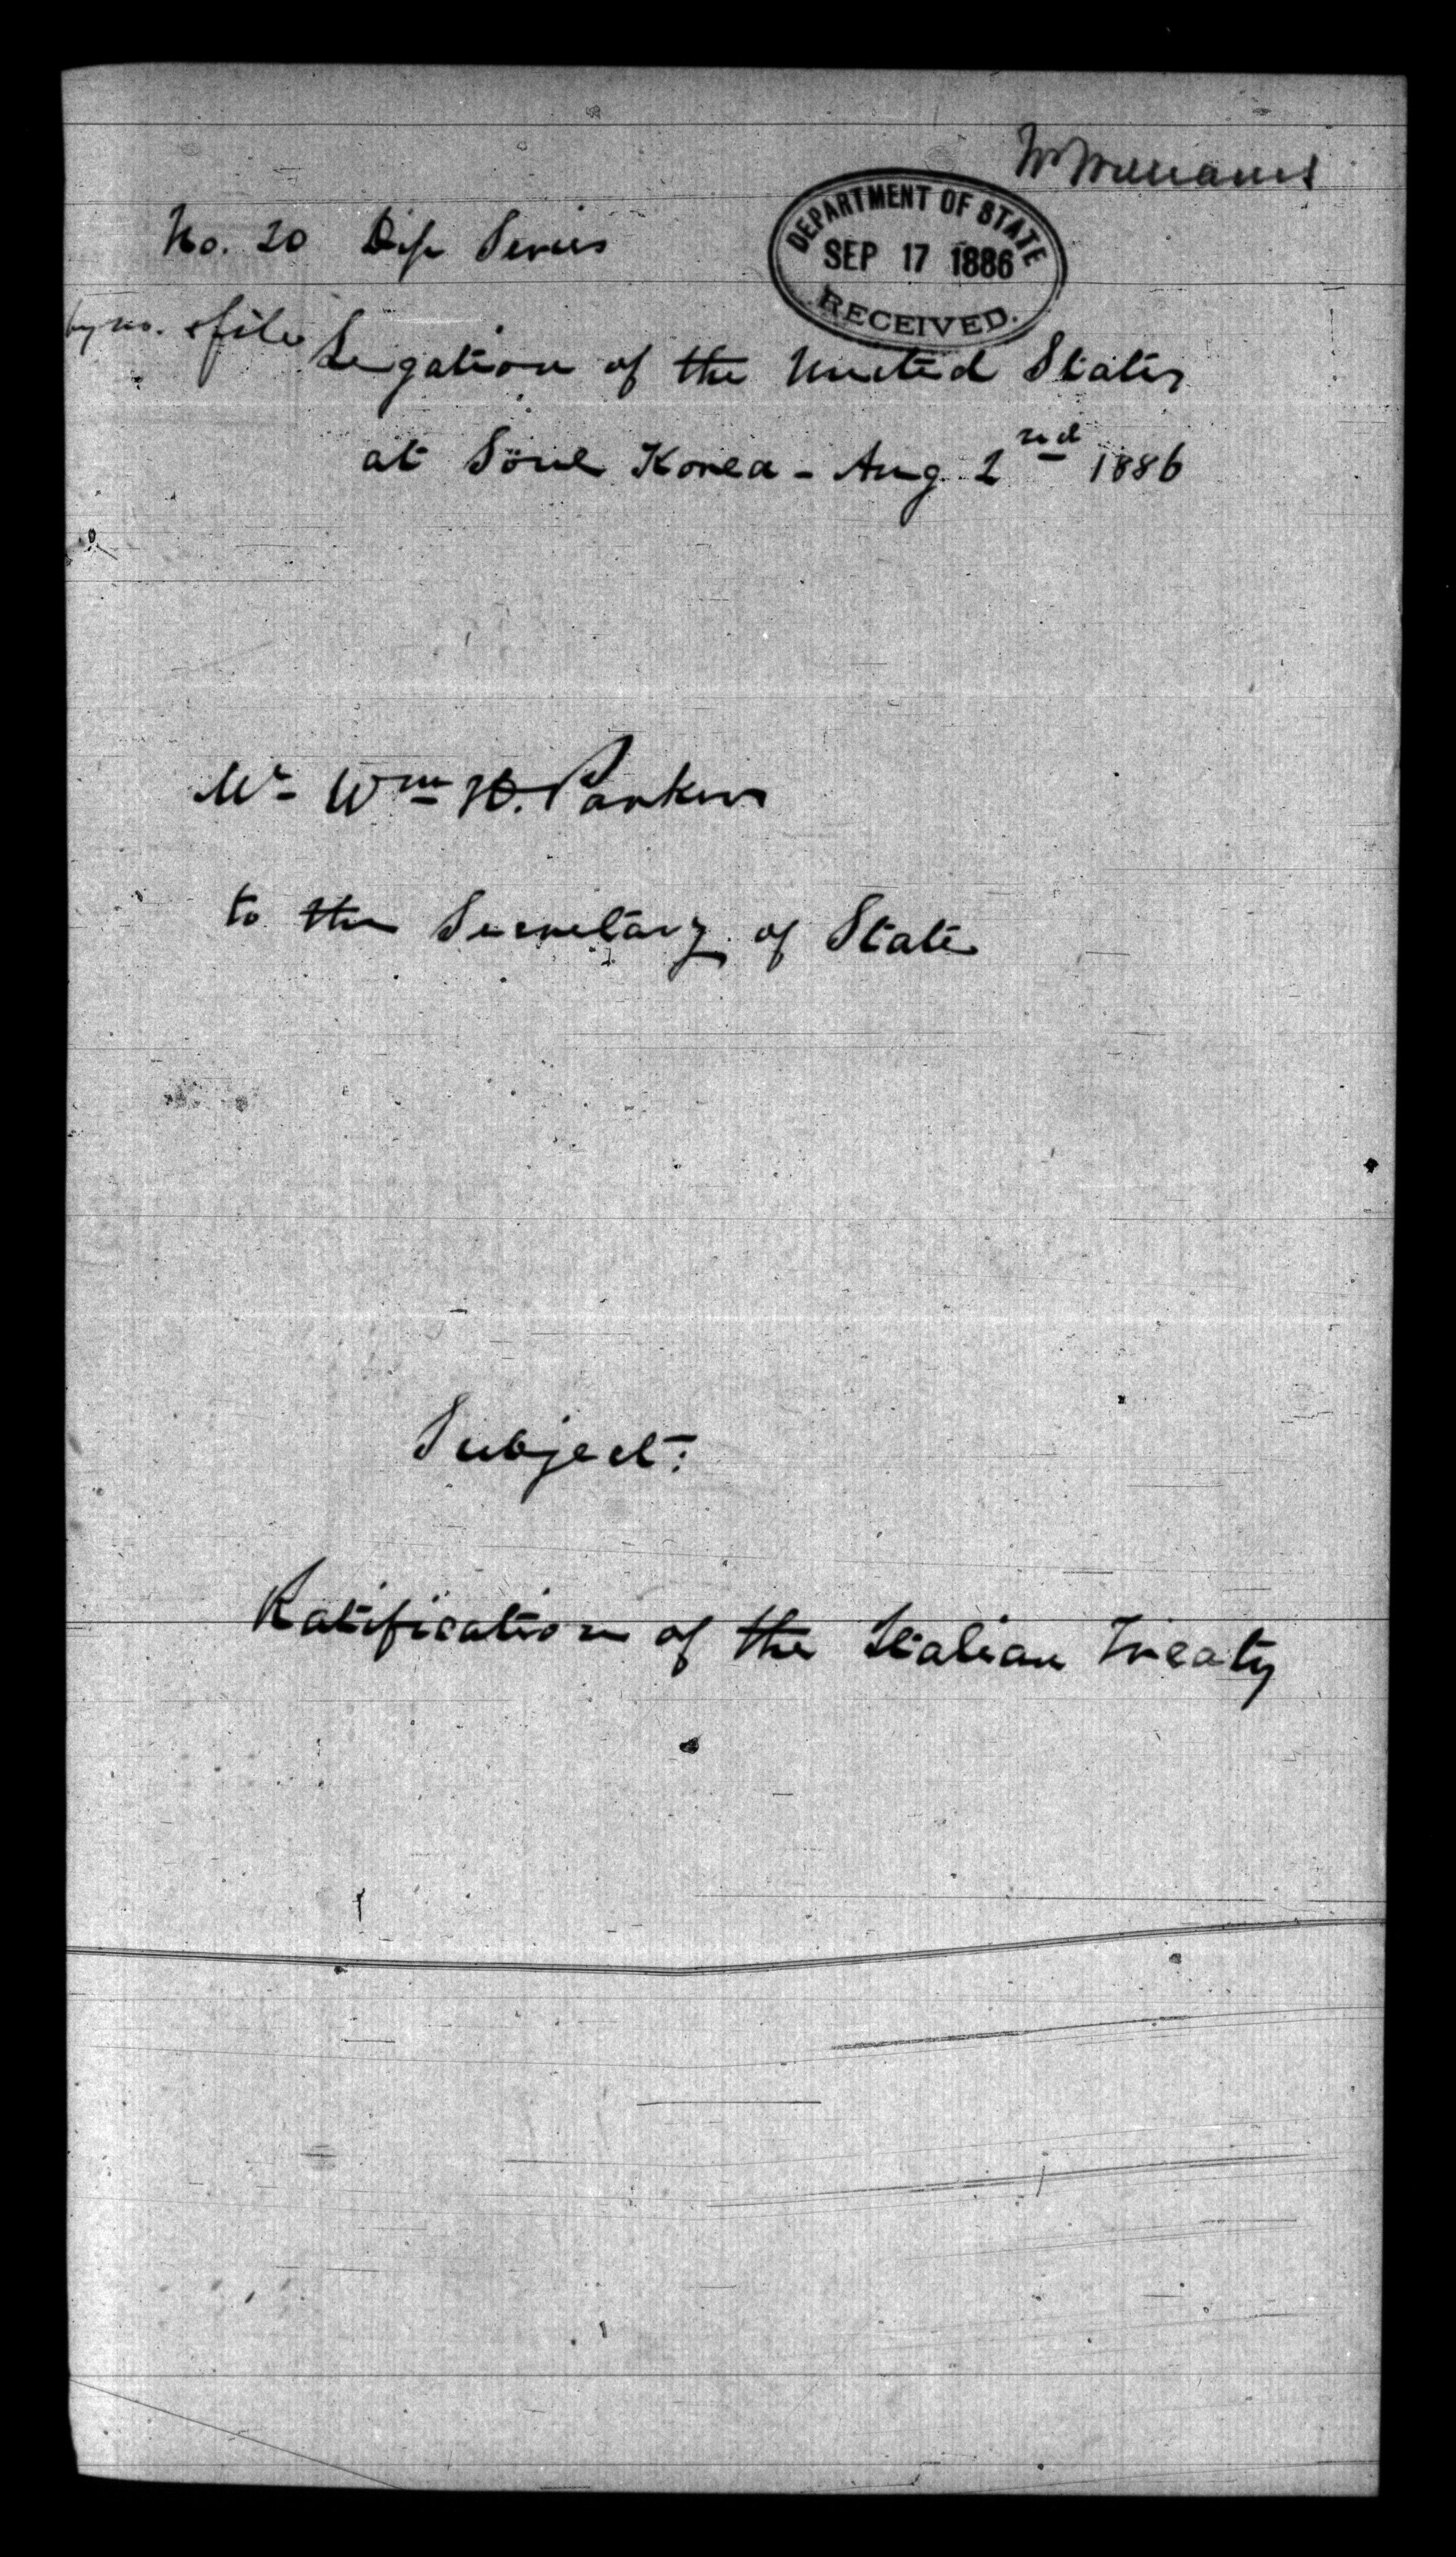 Mr Williams
DEPARTMENT OF STATE
SEP 17 1886
RECEIVED.
No. 20 Dip Series
by no. & file
Legation of the United States
at Söul Korea - Aug. 2nd 1886
Mr Wm H. Parker
to the Secretary of State
Subject:
Ratification of the Italian Treaty